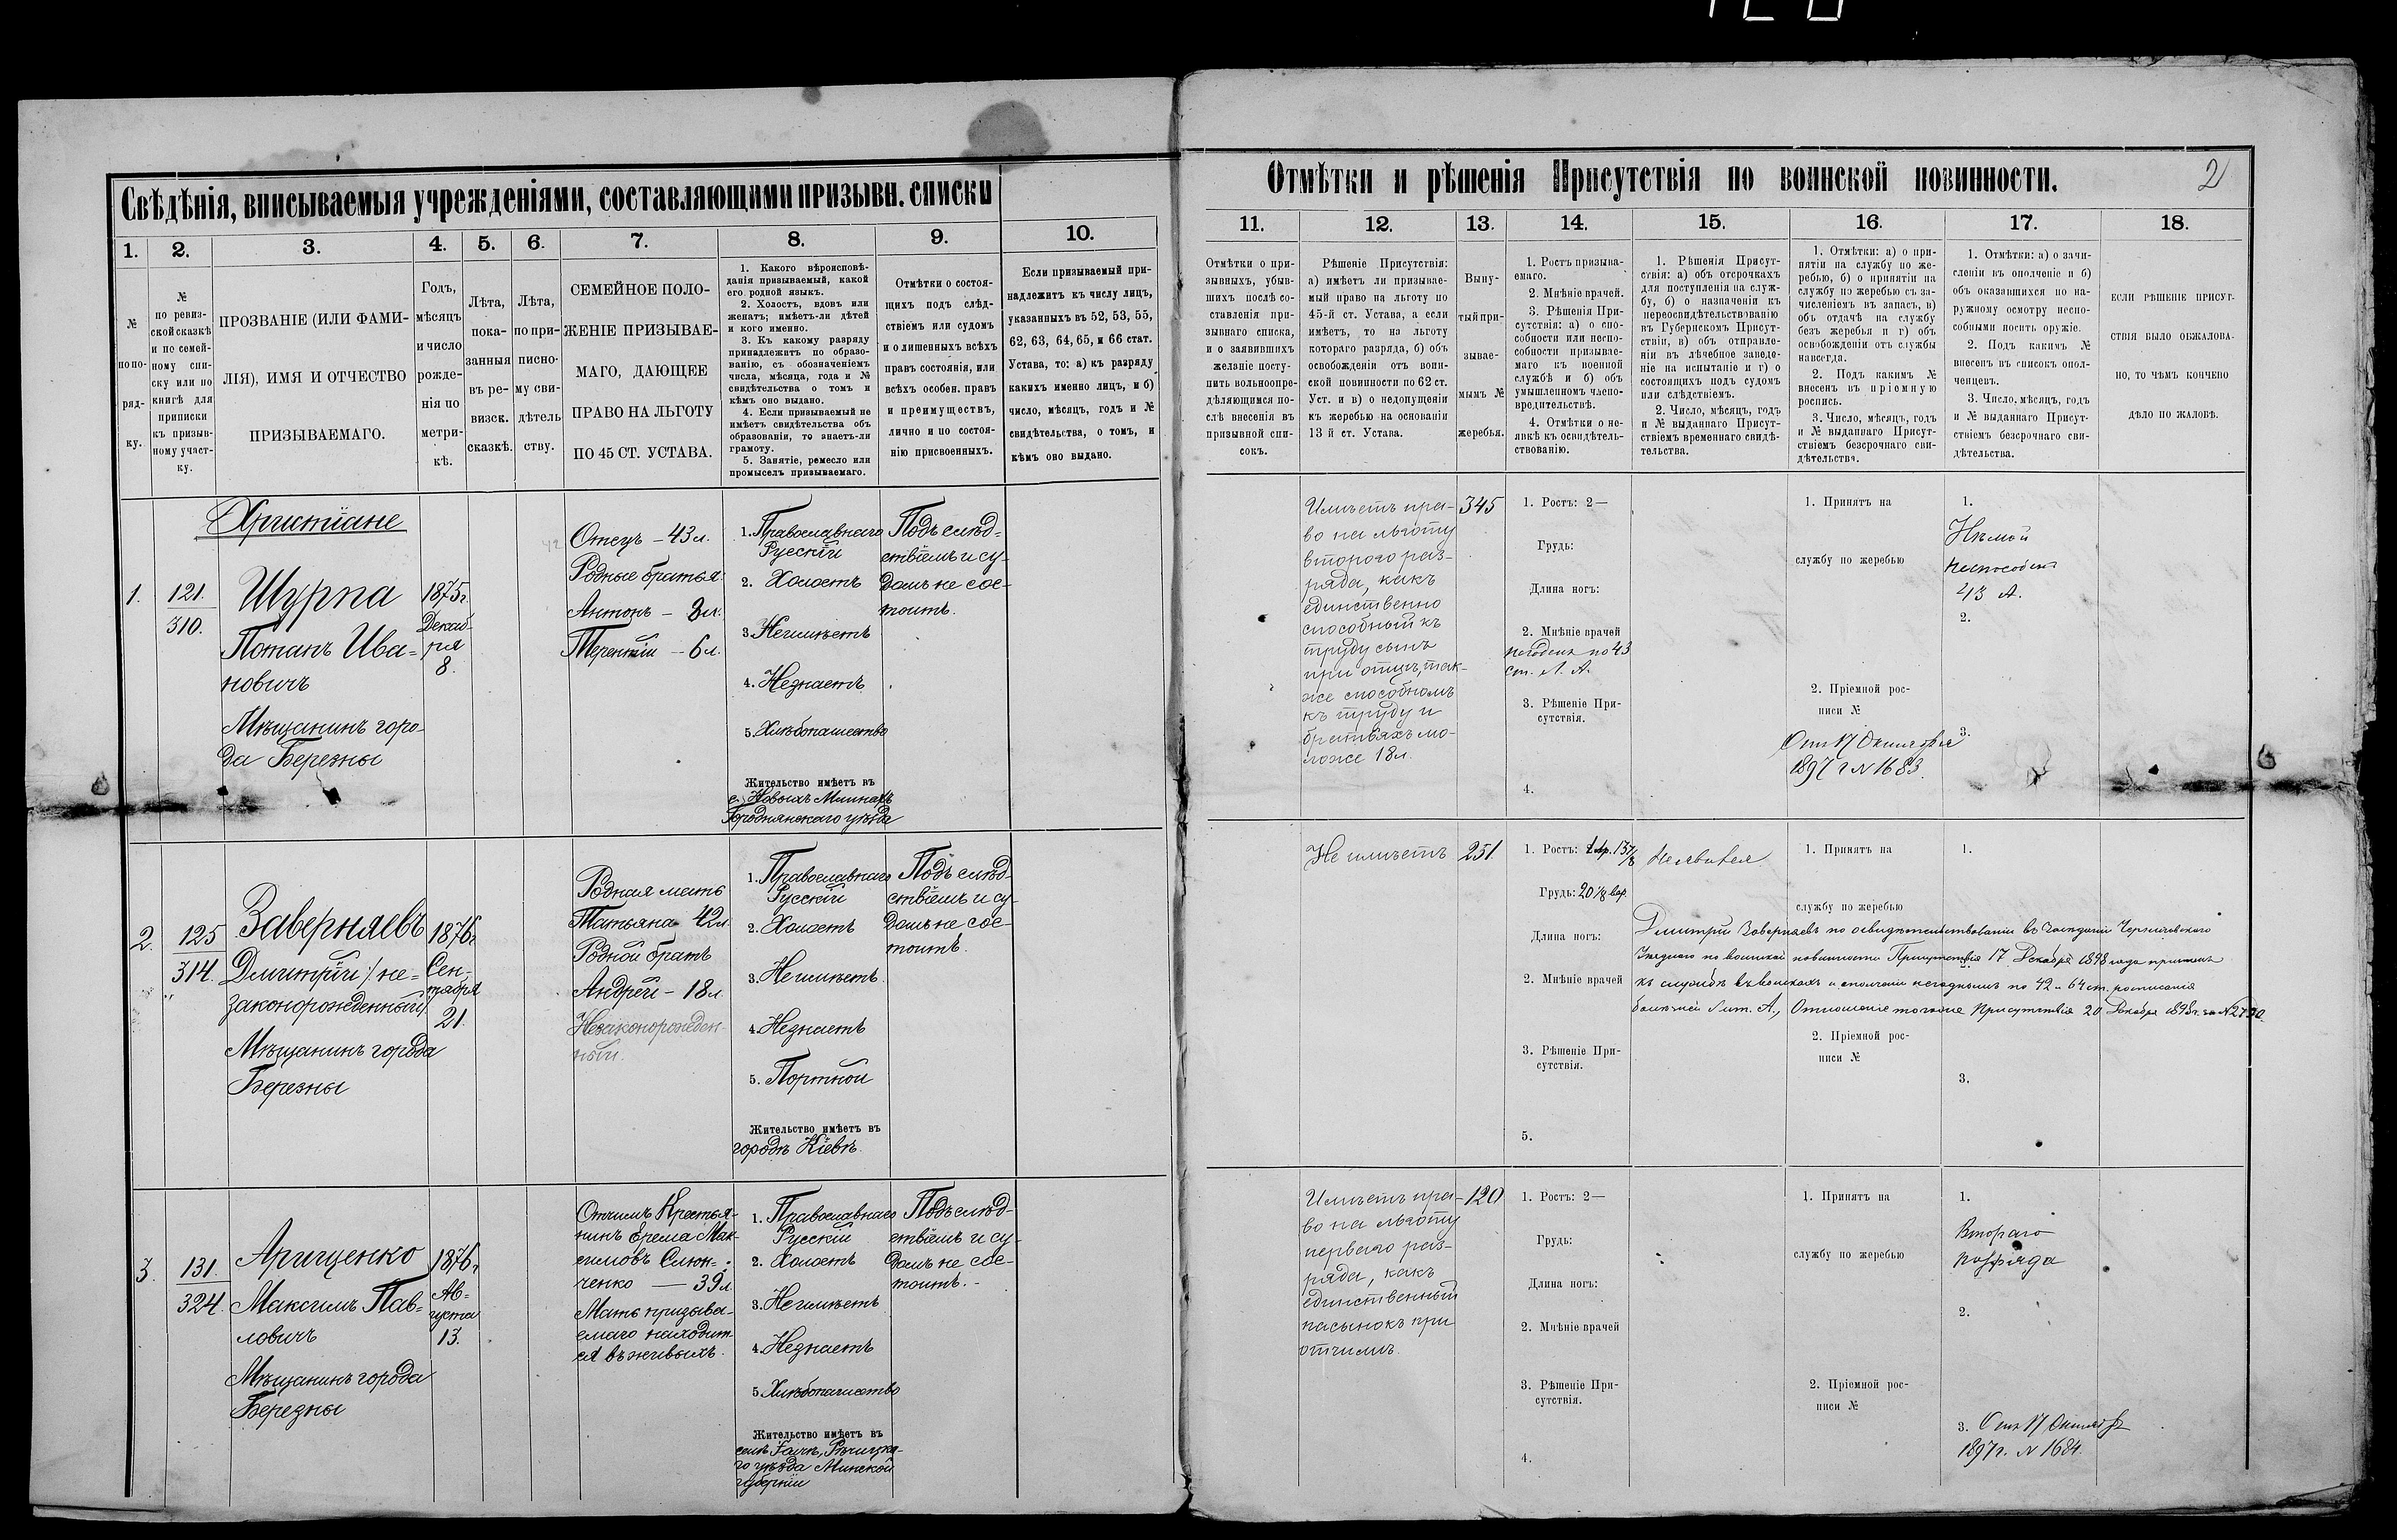 Свѣдѣнія, вписываемыя учрежденіями, составляющими призывн. списки
1.
2.
3.
4.
5.
6.
7.
8.
9.
10.
№
по по-
ряд-
ку.
№
по ревиз-
ской сказкѣ
и по семей-
ному спи-
ску или по
книгѣ для
приписки
къ призыв-
ному участ-
ку.
ПРОЗВАНІЕ (ИЛИ ФАМИ-
ЛІЯ), ИМЯ И ОТЧЕСТВО
ПРИЗЫВАЕМАГО.
Годъ,
мѣсяцъ
и число
рожде-
нія по
метри-
кѣ.
Лѣта,
пока-
занныя
въ ре-
визск.
сказкѣ.
Лѣта,
по при-
писно-
му сви-
дѣтель
ству.
СЕМЕЙНОЕ ПОЛО-
ЖЕНІЕ ПРИЗЫВАЕ-
МАГО, ДАЮЩЕЕ
ПРАВО НА ЛЬГОТУ
ПО 45 СТ. УСТАВА.
1. Какого вѣроисповѣ-
данія призываемый, какой
его родной языкъ.
2. Холостъ, вдовъ или
женатъ; имѣетъ-ли дѣтей
и кого именно.
3. Къ какому разряду
принадлежитъ по образо-
ванію, съ обозначеніемъ
числа, мѣсяца, года и №
свидѣтельства о томъ и
кѣмъ оно выдано.
4. Если призываемый не
имѣетъ свидѣтельства объ
образованіи, то знаетъ-ли
грамоту.
5. Занятіе, ремесло или
промыселъ призываемаго.
Отмѣтки о состоя-
щихъ подъ слѣд-
ствіемъ или судомъ
и о лишенныхъ всѣхъ
правъ состоянія, или
всѣхъ особен. правъ
и преимуществъ,
лично и по состоя-
нію присвоенныхъ.
Если призываемый при-
надлежитъ къ числу лицъ,
указанныхъ въ 52, 53, 55,
62, 63, 64, 65, и 66 стат.
Устава, то: а) къ разряду
какихъ именно лицъ, и б)
число, мѣсяцъ, годъ и №
свидѣтельства, о томъ, и
кѣмъ оно выдано.
Христіане
1.
121.
310.
Шурпа
Потапъ Ива=
новичъ
Мѣщанинъ горо-
да Березны
1875г.
Декаб-
ря
8.
42
Отецъ – 43 л.
Родные братья
Антонъ – 8 л.
Терентій – 6 л.
1. Православнаго
Русскій
2. Холостъ
3. Неимѣетъ
4. Незнаетъ
5. Хлѣбопашество
Жительство имѣетъ въ
с. Новыхъ Млинахъ
Городнянскаго уѣзда
Подъ слѣд=
ствіемъ и су-
домъ не сос-
тоитъ.
2.
125
314.
Заверняевъ
Дмитрій /не=
законорожденный/
Мѣщанинъ города
Березны
1876г.
Сен-
тября
21.
Родная мать
Татьяна 42 л.
Родной братъ
Андрей – 18 л.
Незаконорожден-
ный.
1. Православнаго
Русскій
2. Холостъ
3. Неимѣетъ
4. Незнаетъ
5. Портной
Жительство имѣетъ въ
городѣ Кіевѣ.
Подъ слѣд-
ствіемъ и су-
домъ не сос-
тоитъ.
3.
131.
324.
Арищенко
Максимъ Пав=
ловичъ
Мѣщанинъ города
Березны
1876г.
Ав=
густа
13.
Отчимъ Крестья-
нинъ Ерема Мак-
симовъ Слюн-
ченко — 39 л.
Мать призыва-
емаго находит-
ся въ живыхъ.
1. Православнаго
Русскій
2. Холостъ
3. Неимѣетъ
4. Незнаетъ
5. Хлѣбопашество
Жительство имѣетъ въ
Рѣчицка-
го уѣзда Минской
губерніи
Подъ слѣд-
ствіемъ и су-
домъ не сос-
тоитъ.
Отмѣтки и рѣшенія Присутствія по воинской повинности.
2
11.
12.
13.
14.
15.
16.
17.
18.
Отмѣтки о при-
зывныхъ, убыв-
шихъ послѣ со-
ставленія при-
зывнаго списка,
и о заявившихъ
желаніе посту-
пить вольноопре-
дѣляющимся по-
слѣ внесенія въ
призывной спи-
сокъ.
Рѣшеніе Присутствія:
а) имѣетъ ли призывае-
мый право на льготу по
45-й ст. Устава, а если
имѣетъ, то на льготу
котораго разряда, б) объ
освобожденіи отъ воин-
ской повинности по 62 ст.
Уст. и в) о недопущеніи
къ жеребью на основаніи
13 й ст. Устава.
Выну-
тый при-
зывае-
мымъ №
жеребья.
1. Ростъ призыва-
емаго.
2. Мнѣніе врачей.
3. Рѣшенія При-
сутствія: а) о спо-
собности или неспо-
собности призывае-
маго къ военной
службѣ и б) объ
умышленномъ члено-
вредительствѣ.
4. Отмѣтки о не-
явкѣ къ освидѣтель-
ствованію.
1. Рѣшенія Присут-
ствія: а) объ отсрочкахъ
для поступленія на служ-
бу, б) о назначеніи къ
переосвидѣтельствованію
въ Губернскомъ Присут-
ствіи, в) объ отправле-
ніи въ лѣчебное заведе-
ніе на испытаніе и г) о
состоящихъ подъ судомъ
или слѣдствіемъ.
2. Число, мѣсяцъ, годъ
и № выданнаго Присут-
ствіемъ временнаго свидѣ-
тельства.
1. Отмѣтки: а) о при-
нятіи на службу по же-
ребью, б) о принятіи на
службу по жеребью съ за-
численіемъ въ запасъ, в)
объ отдачѣ на службу
безъ жеребья и г) объ
освобожденіи отъ службы
навсегда.
2. Подъ какимъ №
внесенъ въ пріемную
роспись.
3. Число, мѣсяцъ, годъ
и № выданнаго Присут-
ствіемъ безсрочнаго сви-
дѣтельства.
1. Отмѣтки: а) о зачи-
сленіи въ ополченіе и б)
объ оказавшихся по на-
ружному осмотру неспо-
собными носить оружіе.
2. Подъ какимъ №
внесенъ въ списокъ опол-
ченцевъ.
3. Число, мѣсяцъ, годъ
и № выданнаго Присут-
ствіемъ безсрочнаго сви-
дѣтельства.
ЕСЛИ РѢШЕНІЕ ПРИСУТ-
СТВІЯ БЫЛО ОБЖАЛОВА-
НО, ТО ЧѢМЪ КОНЧЕНО
ДѢЛО ПО ЖАЛОБѢ.
Имѣетъ пра-
во на льготу
второго раз-
ряда, какъ
единственно
способный къ
труду сынъ
при отцѣ, так-
же способномъ
къ труду и
братьяхъ мо-
ложе 18 л.
345
1. Ростъ: 2 —
Грудь:
Длина ногъ:
2. Мнѣніе врачей
негоденъ по 43
ст. Л. А.
3. Рѣшеніе При-
сутствія.
4.
1. Принятъ на
службу по жеребью
2. Пріемной рос-
писи №
17 Октября
1897 г № 1683.
1.
Нѣмой
неспособенъ
43 А.
2.
3.
Не имѣетъ
251
1. Ростъ:
Грудь: 20 1/8 вер.
Длина ногъ:
2. Мнѣніе врачей
3. Рѣшеніе При-
сутствія.
5.
Неявился
1. Принятъ на
службу по жеребью
1.
Дмитрій Заверняевъ по освидѣтельствованіи въ Засѣданіи Черниговскаго
Уѣзднаго по воинской повинности Присутствія 17 Декабря 1898 года признанъ
къ службѣ въ войскахъ и ополченіи негоднымъ по 42 и 64 ст. росписанія
болѣзней Лит. А., Отношеніе того же Присутствія 20 Декабря 1898 г. за №
2. Пріемной рос-
писи №
3.
Имѣетъ пра-
во на льготу
перваго раз-
ряда, какъ
единственный
пасынокъ при
отчимѣ.
120
1. Ростъ: 2 —
Грудь:
Длина ногъ:
2. Мнѣніе врачей
3. Рѣшеніе При-
сутствія.
4.
1. Принятъ на
службу по жеребью
2. Пріемной рос-
писи №
1.
Втораго
разряда
2.
3. 17 Октября
1897 г. № 1684.